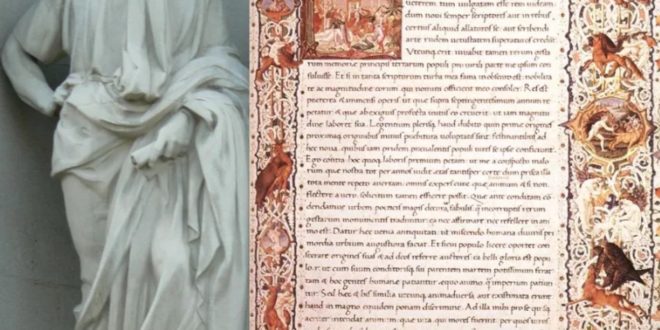 ueterem tum uulgatam esse rem uideam
dum noui semper scriptores aut in rebus
certius aliquid allaturos se. aut scribendi
arte rudem uetustatem superaturos credūt
Vtcunq; erit. iuuabit tamen rerum gesta
rum memoriæ principis terrarum populi pro uirili parte me ipsum con
suluisse. Et si in tanta scriptorum turba mea fama in obscuro est: nobilita
te ac magnitudine eorum qui nomini officient meo consoler. Res est
præterea & immensi operis ut quæ supra septingentesimum annum re
petatur: & quæ ab exiguis profecta initiis eo creuerit: ut iam magnitu
dine laboret sua. Legentium plerisq; haud dubito quin primæ origines
proximaq; originibus minus præbitura uoluptatis sint festinantibus ad
hec noua. quibus iam pridem præualentis populi uires se ipse conficiunt
Ego contra hoc quoq; laboris premium petam: ut me a conspectu malo
rum quæ nostra tot per annos uidit ætas tantisper certe dum prisca illa
tota mente repeto auertam: omnis expers curæ quæ animum & si non
flectere a uero. sollicitum tamen efficere possit. Quæ ante conditam cō
dendamue urbem poeticis magis decora fabulis. q̄ incorruptis rerum
gestarum monumentis traduntur: ea nec affirmare nec refellere in ani
mo est. Datur hec uenia antiquitati. ut miscendo humana diuinis pri
mordia urbium augustiora faciat. Et si cui populo licere oportet con
secrare origines suas & ad deos referre auctores: ea belli gloria est popu
lo.r. ut cum suum conditorisq; sui parentem martem potissimum ferat
tam & hoc gentes humanæ patiantur æquo animo. q̄ imperium patiun
tur. Sed hæc & his similia utcunq; animaduersa aut existimata erunt
haud in magno equidem ponam discrimine. Ad illa mihi pro se quisq;
acriter intendat animum. quæ uita. qui mores fuerint. per quos